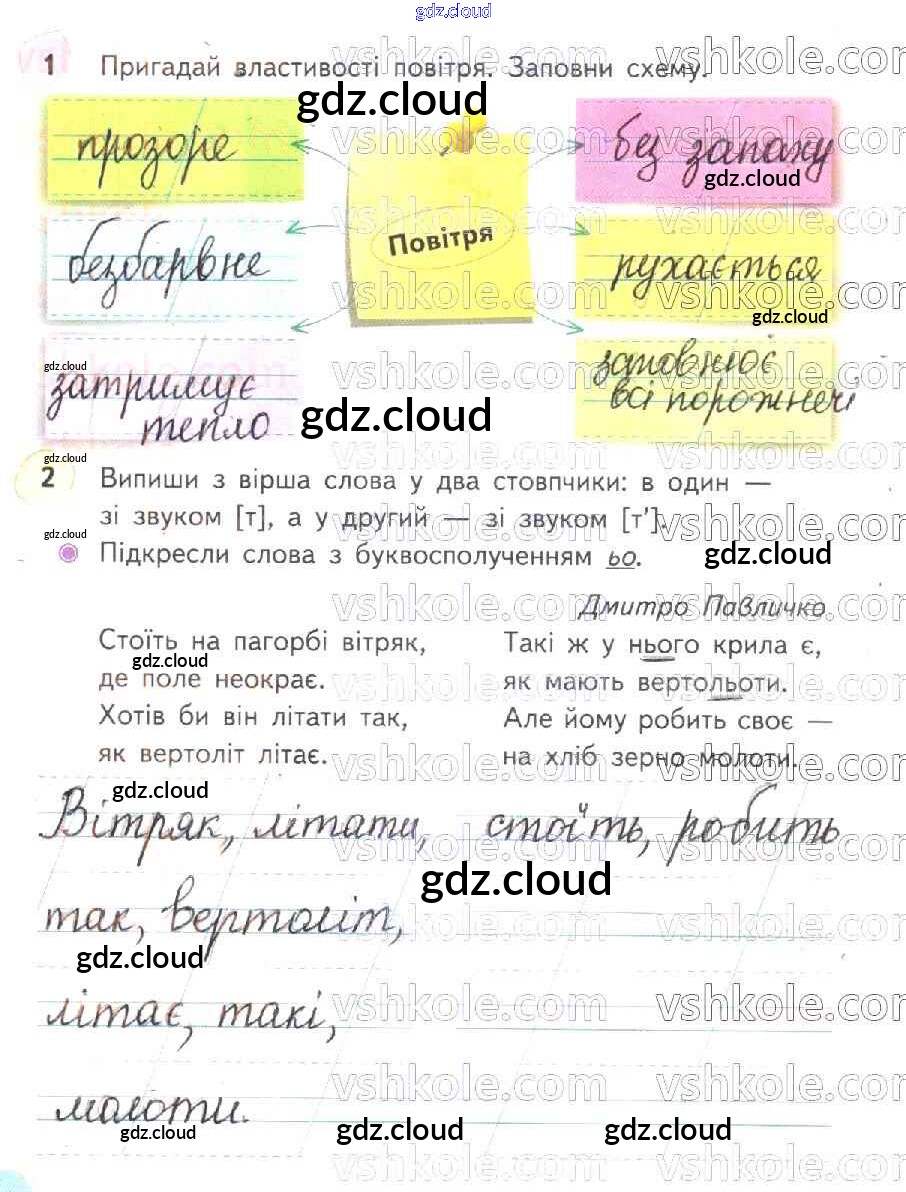 gdz.cloud
1 Пригадай властивості повітря. Заповни схему.
gdz.cloud
прозоре
без запаху
gdz.cloud
Повітря
безбарвне
рухається
gdz.cloud
gdz.cloud
затримує
тепло
заповнює
всі порожнечі
gdz.cloud
gdz.cloud
2 Випиши з вірша слова у два стовпчики: в один —
зі звуком [т], а у другий — зі звуком [т'].
gdz.cloud
Підкресли слова з буквосполученням ьо.
gdz.cloud
Дмитро Павличко
Стоїть на пагорбі вітряк,
gdz.cloud
де поле неокрає.
Хотів би він літати так,
як вертоліт літає.
Такі ж у нього крила є,
як мають вертольоти.
Але йому робить своє —
на хліб зерно молоти.
gdz.cloud
Вітряк, літати,
стоїть, робить
gdz.cloud
так, вертоліт,
gdz.cloud
літає, такі,
молоти.
gdz.cloud
gdz.cloud
gdz.cloud
vshkole.com